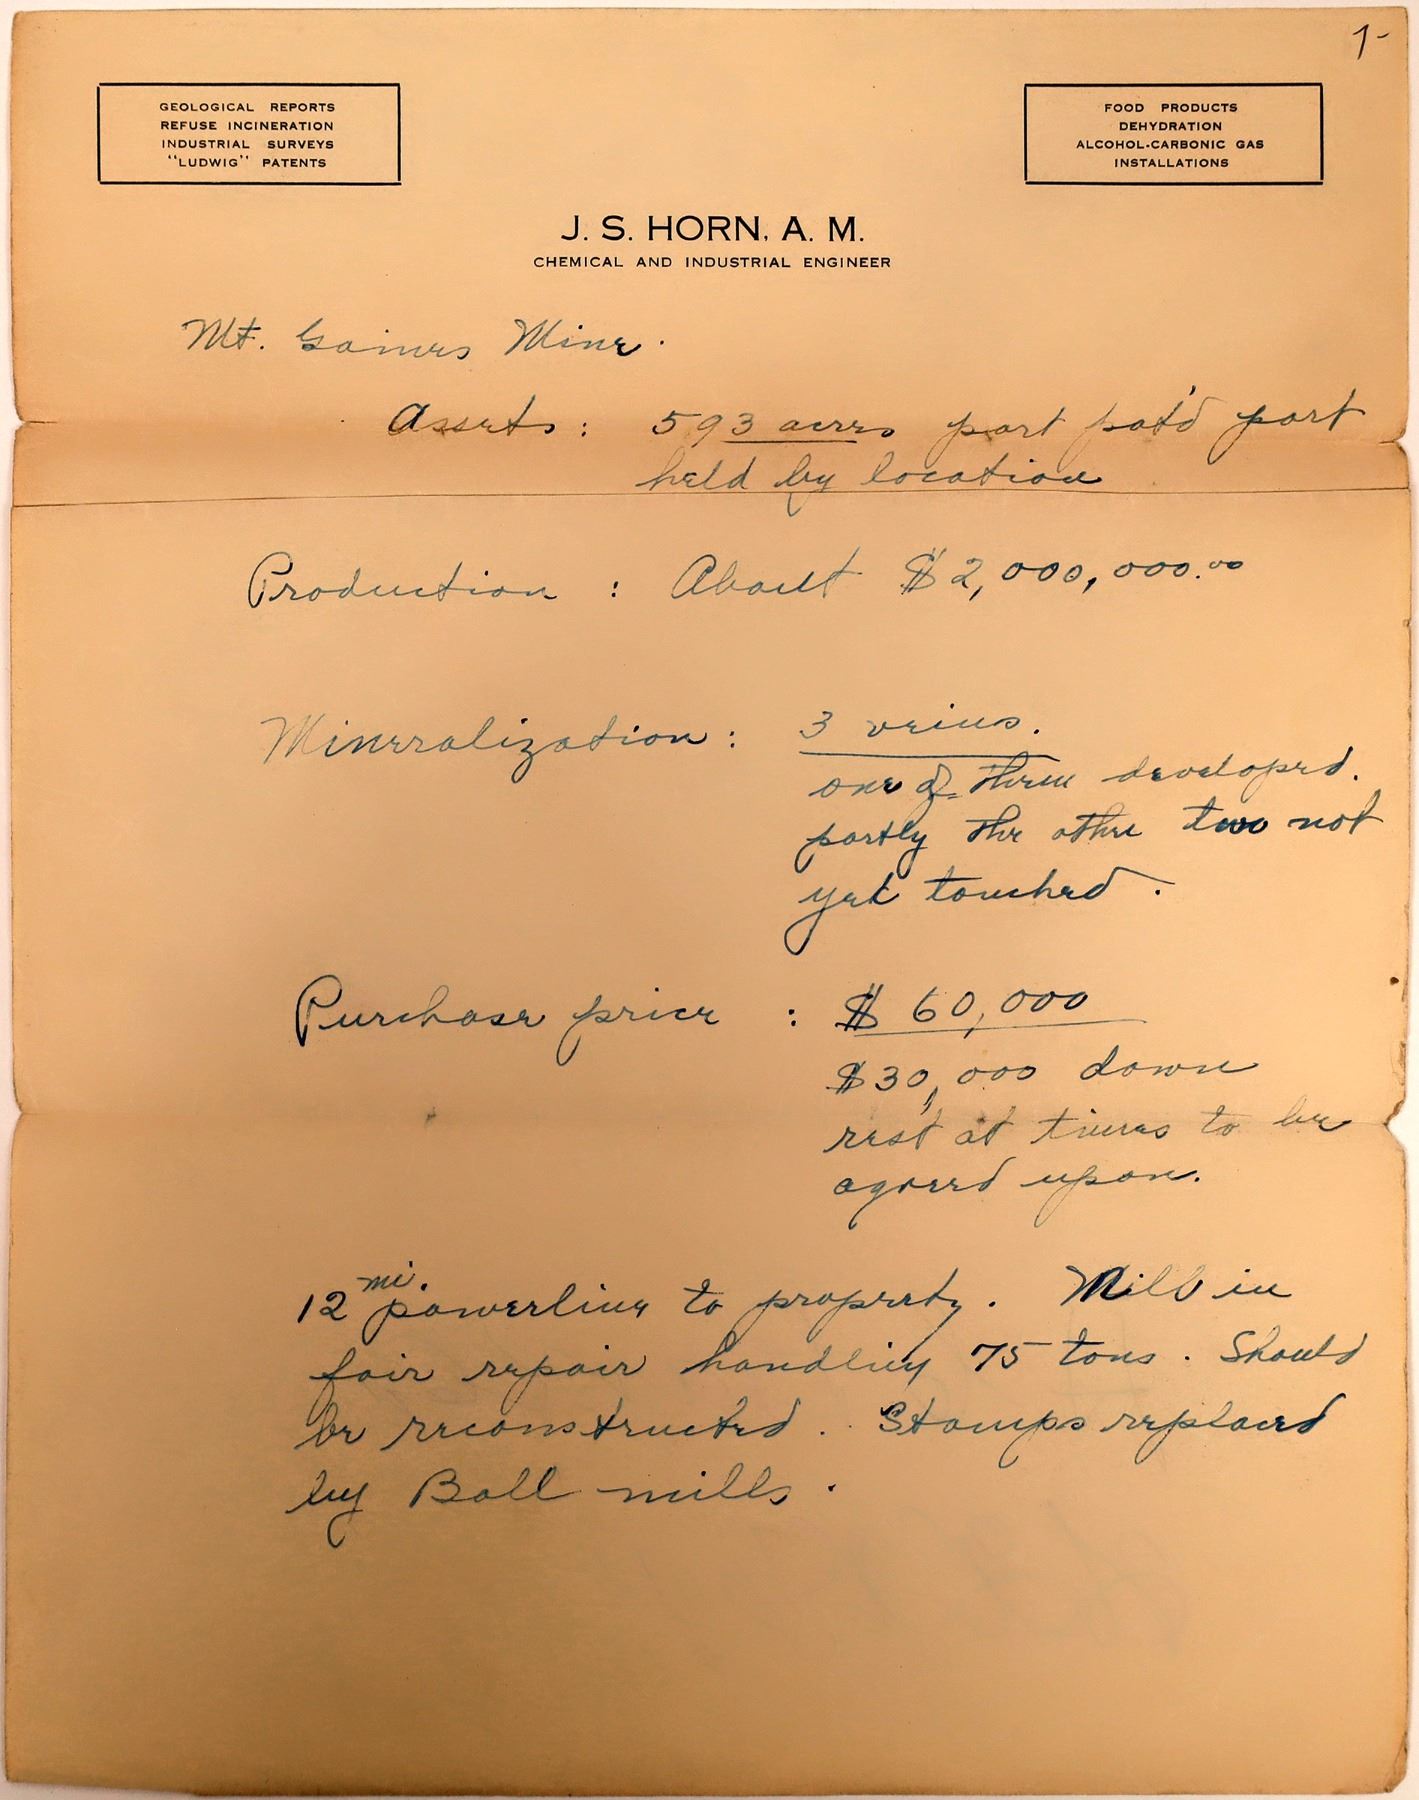 1-
GEOLOGICAL REPORTS
REFUSE INCINERATION
INDUSTRIAL SURVEYS
"LUDWIG" PATENTS
FOOD PRODUCTS
DEHYDRATION
ALCOHOL-CARBONIC GAS
INSTALLATIONS
J. S. HORN, A. M.
CHEMICAL AND INDUSTRIAL ENGINEER
Mt. Gaines Mine.
Assets: 593 acres part pat'd part
held by location
Production: About $2,000,000.00
Mineralization: 3 veins.
one of them developed.
partly the other two not
yet touched.
Purchase price: $60,000
$30,000 down
rest at times to be
agreed upon.
12 mi. powerline to property. Mill in
fair repair handling 75 tons. Should
be reconstructed. Stamps replaced
by Ball mills.